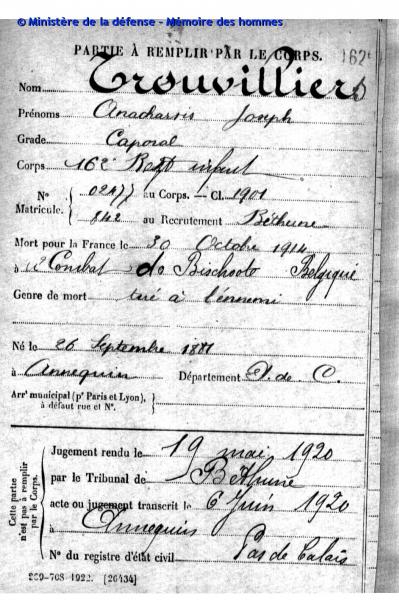 © Ministère de la défense - Mémoire des hommes
PARTIE À REMPLIR PAR LE CORPS.
162
Nom Trouvilliers
Prénoms Anacharsis Joseph
Grade Caporal
Corps 162e Regt infant
N° Matricule. { 02477 au Corps. — Cl. 1901
842 au Recrutement Béthune
Mort pour la France le 30 Octobre 1914
à Combat de Bischoote Belgique
Genre de mort tué à l'ennemi
Né le 26 Septembre 1881
à Annequin Département P. de C.
Arrt municipal (pr Paris et Lyon), à défaut rue et N°. {
Cette partie n'est pas à remplir par le Corps. {
Jugement rendu le 19 mai 1920
par le Tribunal de Béthune
acte ou jugement transcrit le 6 Juin 1920
à Annequin
N° du registre d'état civil Pas de Calais
269-708-1922. [26434]